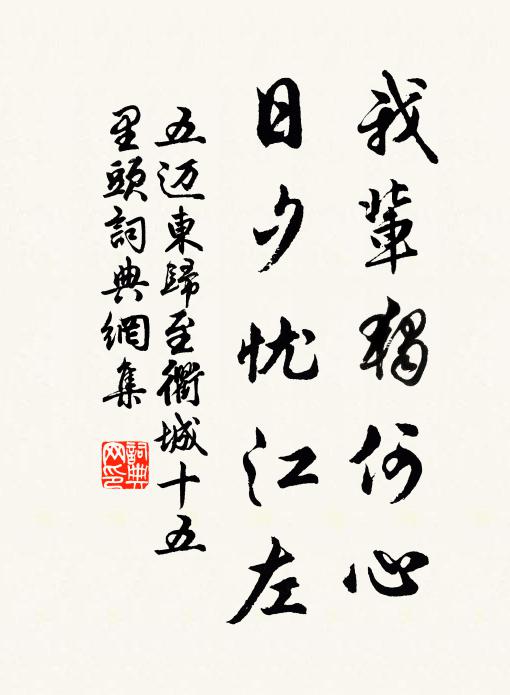 我輩獨何心
日夕忧江左
五迈東歸至衢城十五
里頭詞典網集
詞典
网印